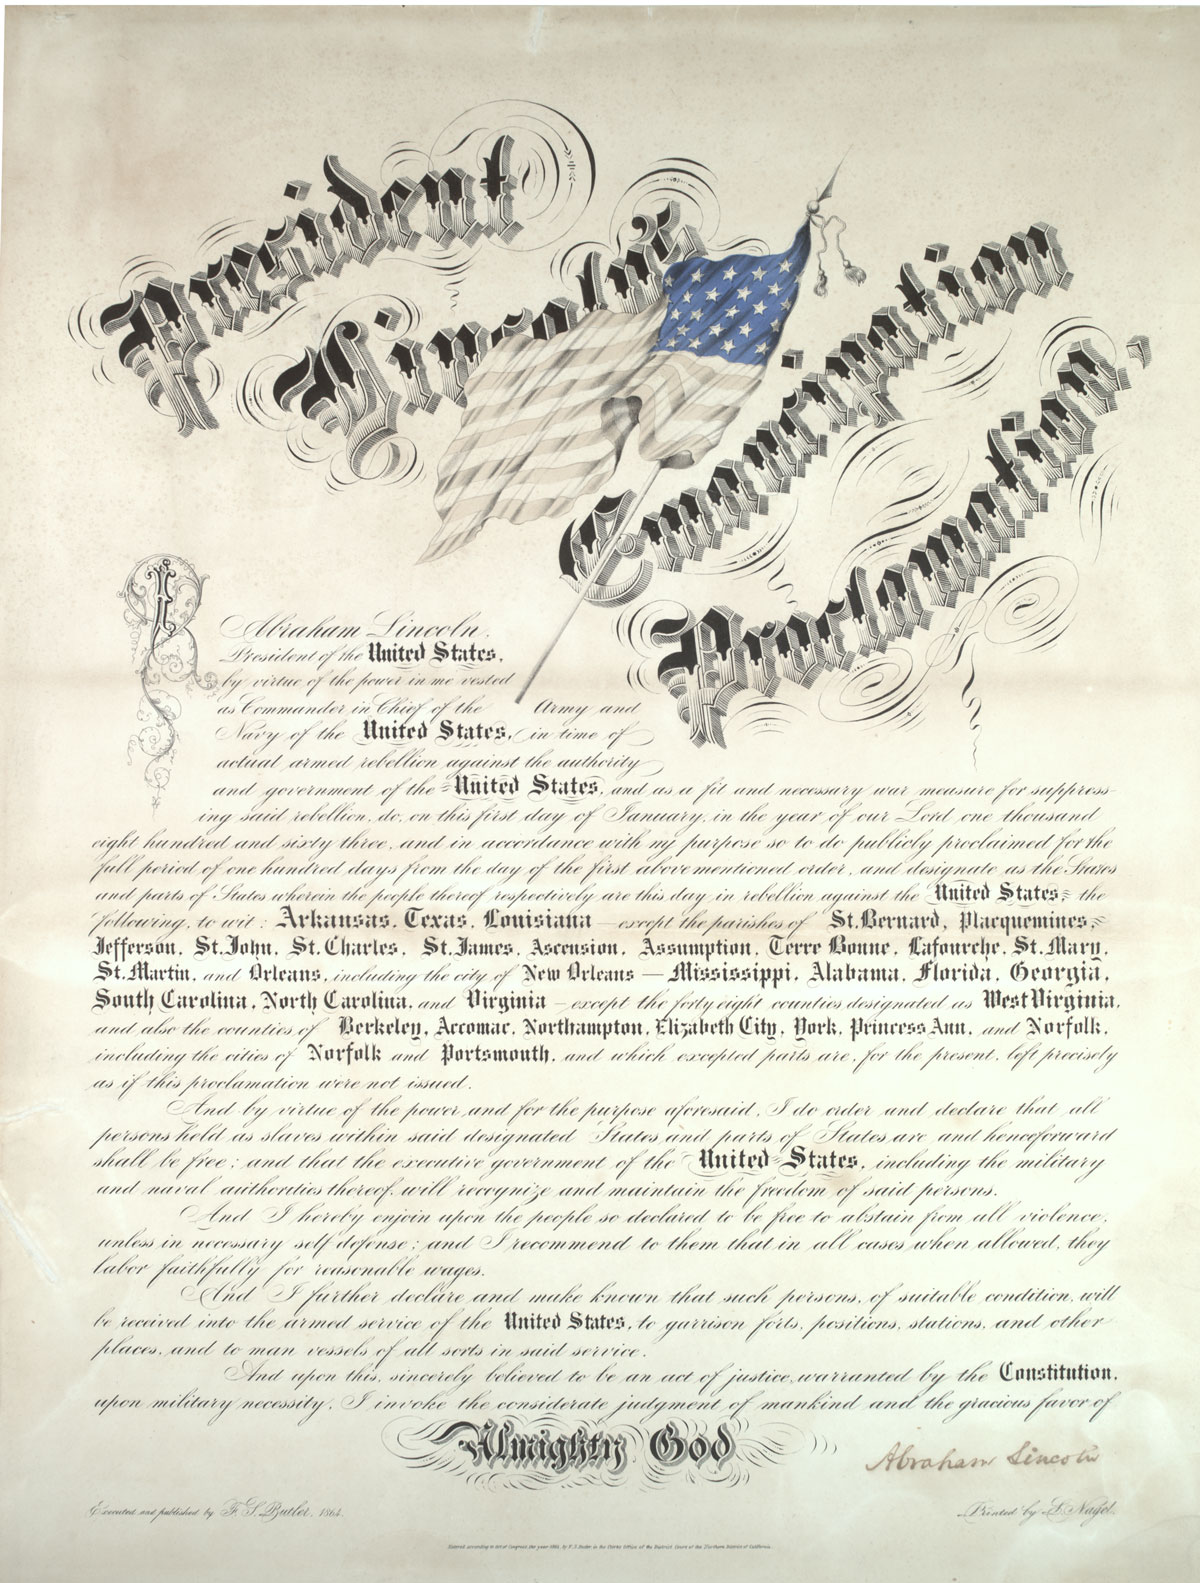 President
Lincoln's
Emancipation
Proclamation.
I
Abraham Lincoln.
President of the United States,
by virtue of the power in me vested
as Commander in Chief of the Army and
Navy of the United States, in time of
actual armed rebellion against the authority
and government of the United States, and as a fit and necessary war measure for suppress-
ing said rebellion, do, on this first day of January, in the year of our Lord one thousand
eight hundred and sixty three, and in accordance with my purpose so to do publicly proclaimed for the
full period of one hundred days from the day of the first above mentioned order, and designate as the States
and parts of States wherein the people thereof respectively are this day in rebellion against the United States, the
following, to wit: Arkansas, Texas, Louisiana — except the parishes of St. Bernard, Placquemines,
Jefferson, St. John, St. Charles, St. James, Ascension, Assumption, Terre Bonne, Lafourche, St. Mary,
St. Martin, and Orleans, including the city of New Orleans — Mississippi, Alabama, Florida, Georgia,
South Carolina, North Carolina, and Virginia — except the forty eight counties designated as West Virginia,
and also the counties of Berkeley, Accomac, Northampton, Elizabeth City, York, Princess Ann, and Norfolk,
including the cities of Norfolk and Portsmouth, and which excepted parts are, for the present, left precisely
as if this proclamation were not issued.
And by virtue of the power and for the purpose aforesaid, I do order and declare that all
persons held as slaves within said designated States and parts of States are and henceforward
shall be free; and that the executive government of the United States, including the military
and naval authorities thereof, will recognize and maintain the freedom of said persons.
And I hereby enjoin upon the people so declared to be free to abstain from all violence,
unless in necessary self defense; and I recommend to them that in all cases when allowed, they
labor faithfully for reasonable wages.
And I further declare and make known that such persons, of suitable condition, will
be received into the armed service of the United States, to garrison forts, positions, stations, and other
places, and to man vessels of all sorts in said service.
And upon this, sincerely believed to be an act of justice, warranted by the Constitution,
upon military necessity, I invoke the considerate judgment of mankind and the gracious favor of
Almighty God
Abraham Lincoln
Executed and published by F. S. Butler, 1864.
Printed by L. Nagel.
Entered according to Act of Congress, the year 1864, by F. S. Butler in the Clerks Office of the District Court of the Northern District of California.